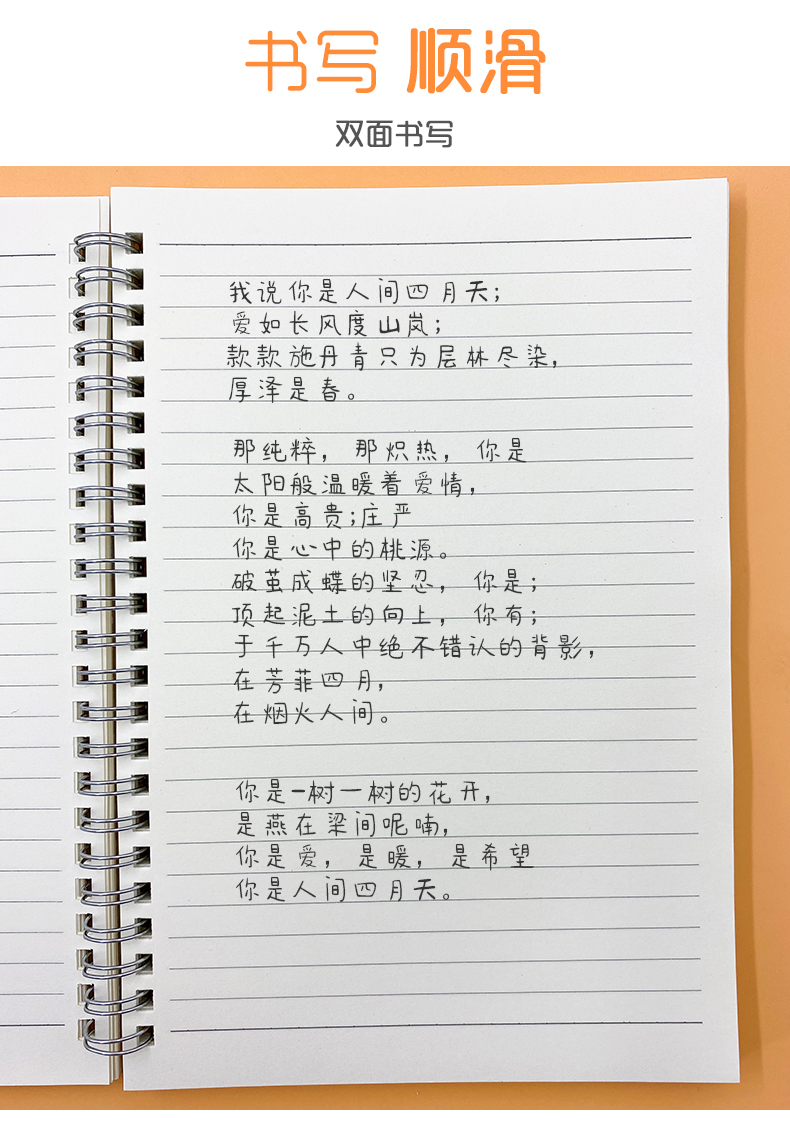 书写 顺滑
双面书写
我说你是人间四月天；
爱如长风度山岚；
款款施丹青只为层林尽染，
厚泽是春。
那纯粹，那炽热，你是
太阳般温暖着爱情，
你是高贵;庄严
你是心中的桃源。
破茧成蝶的坚忍，你是；
顶起泥土的向上，你有；
于千万人中绝不错认的背影，
在芳菲四月，
在烟火人间。
你是一树一树的花开，
是燕在梁间呢喃，
你是爱，是暖，是希望
你是人间四月天。